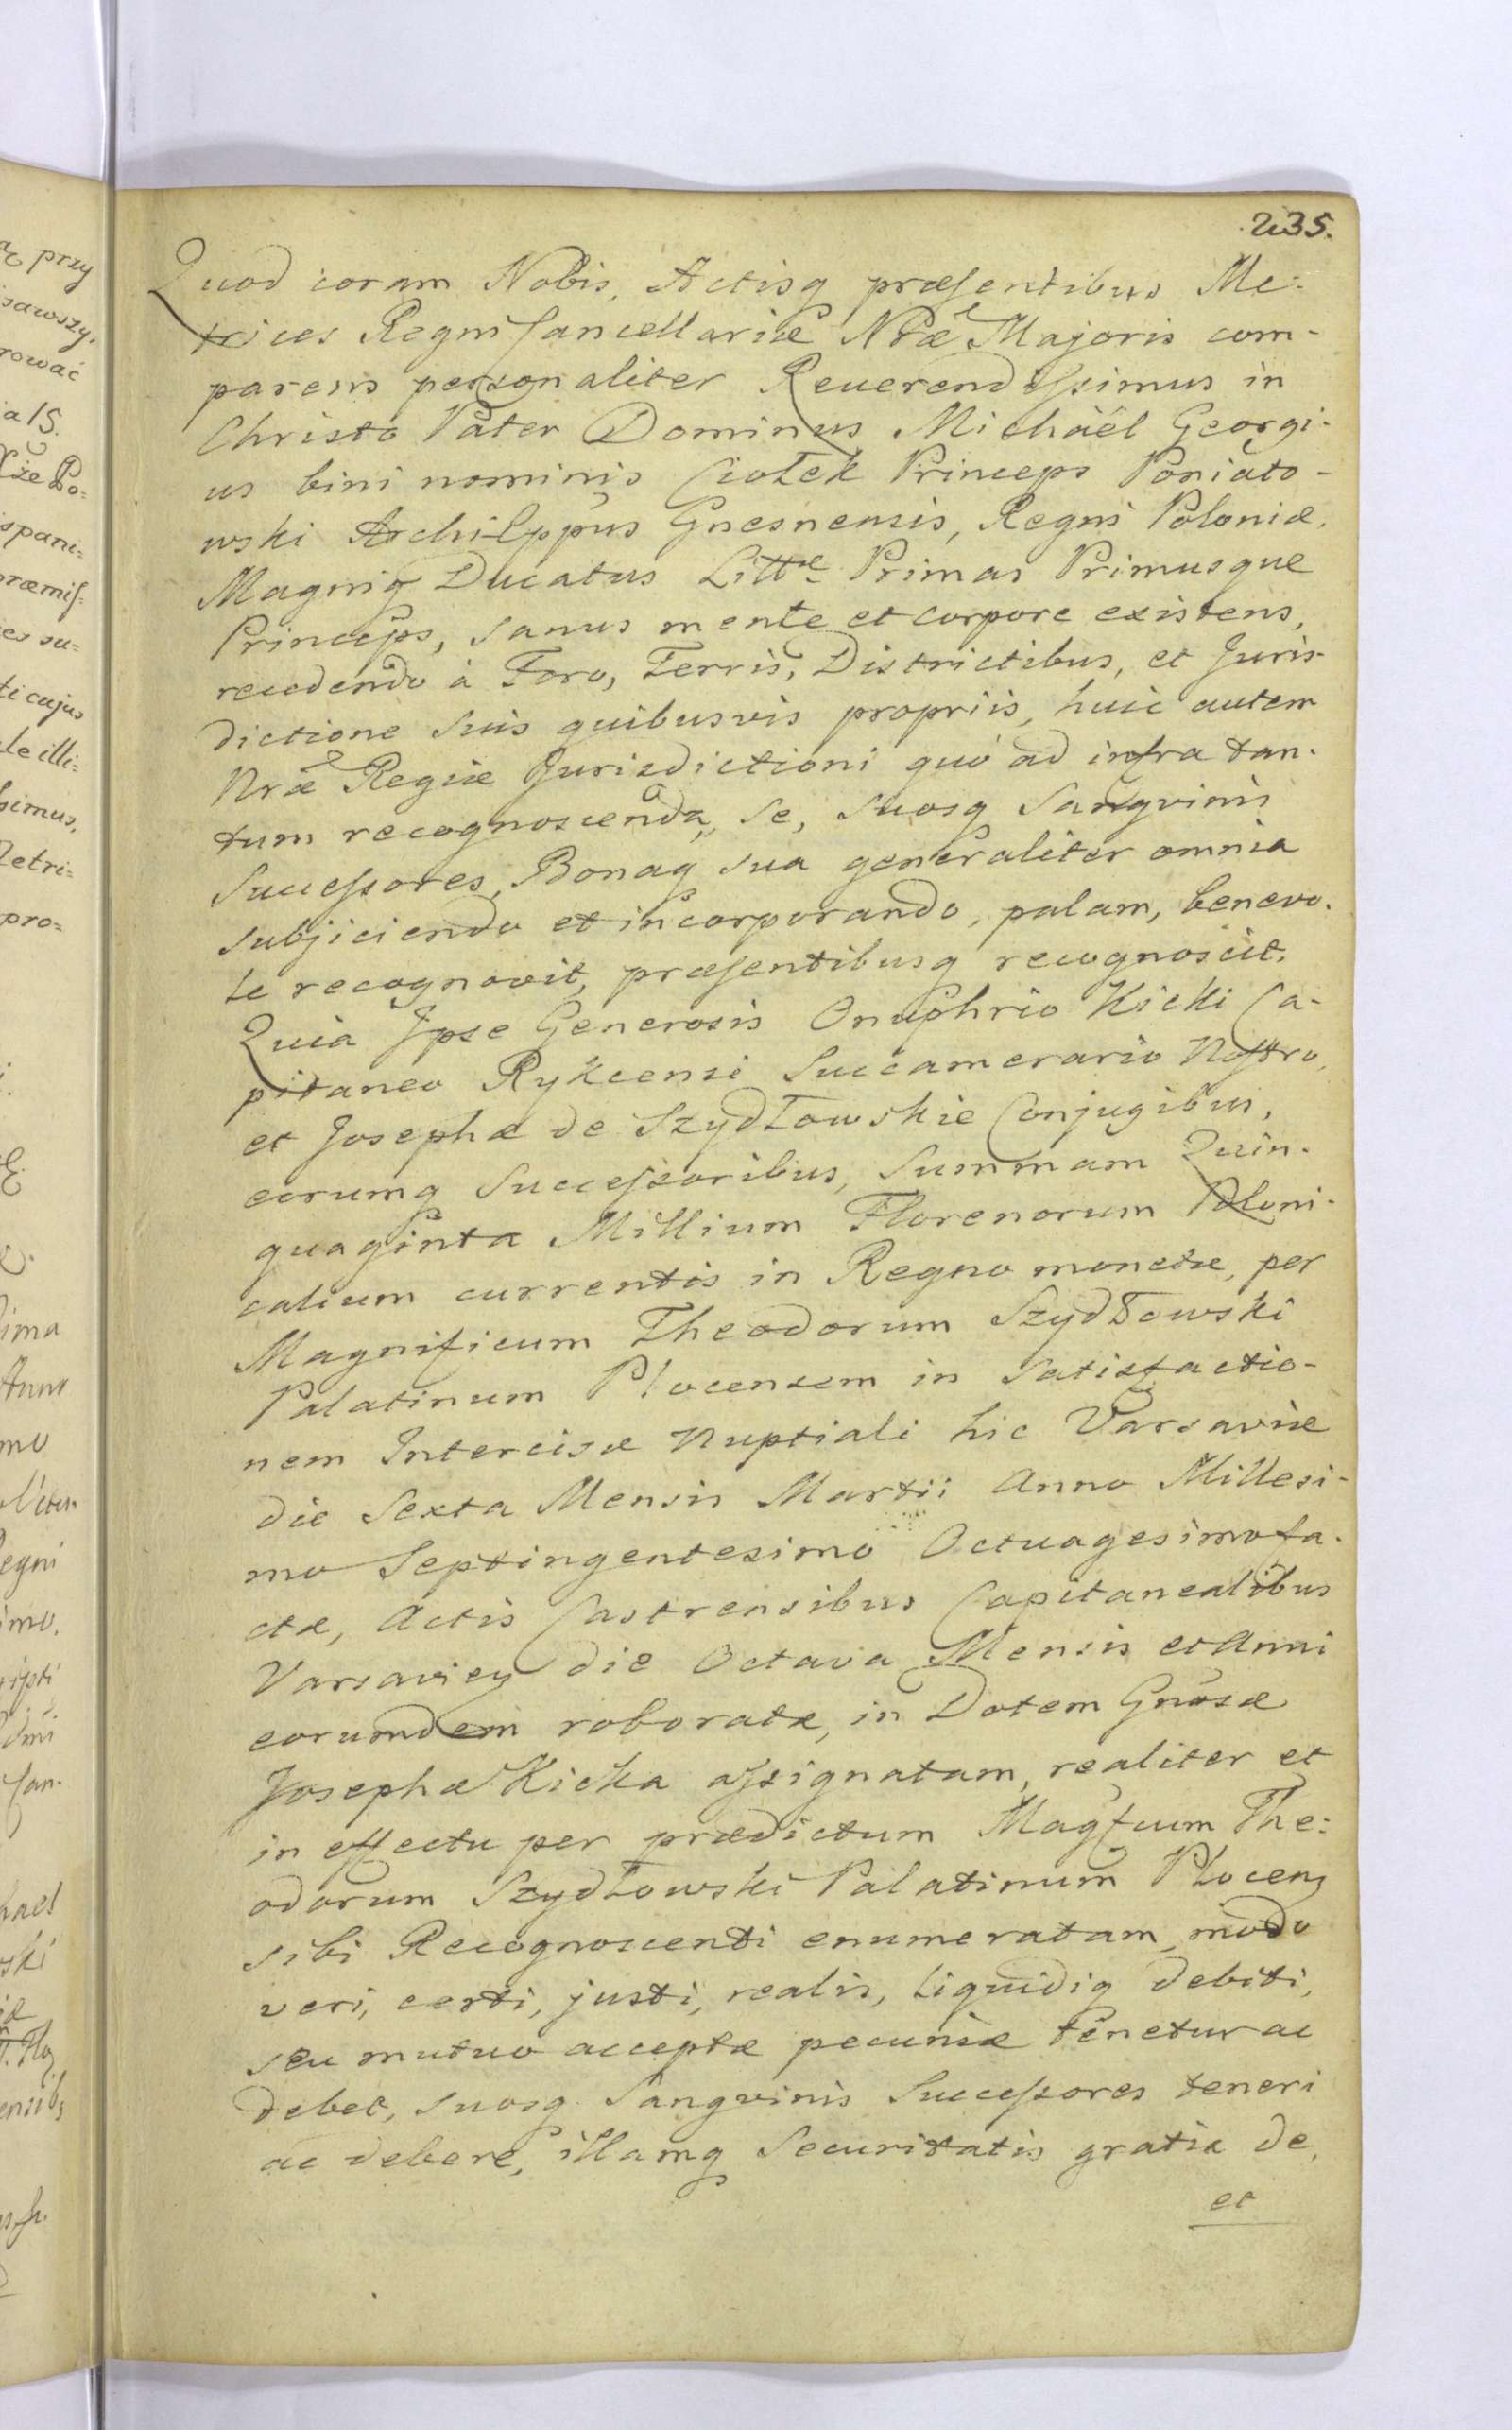 235.
Quod coram Nobis, Actisq præsentibus Me-
trices Regni Cancellariæ Nræ Majoris com-
parens personaliter Reverendissimus in
Christo Pater Dominus Michaël Georgi-
us bini nominis Ciołek Princeps Poniato-
wski ArchiEppus Gnesnensis, Regni Poloniæ,
Magniq Ducatus Littæ Primas Primusque
Princeps, sanus mente et corpore existens,
recedendo à Foro, Terris, Districtibus, et Juris-
dictione suis quibusvis propriis, huic autem
Nræ Regiæ Jurisdictioni quo ad infra tan-
tum recognoscenda, se, suosq Sangvinis
Successores, Bonaq sua generaliter omnia
subjiciendo et incorporando, palam, benevo-
le recognovit, præsentibusq recognoscit.
Quia Ipse Generosis Onuphrio Kicki Ca-
pitaneo Rykcensi Succamerario Nostro,
et Josephæ de Szydłowskie Conjugibus,
eorumq Successoribus, Summam Quin-
quaginta Millium Florenorum Poloni-
calium currentis in Regno monetæ, per
Magnificum Theodorum Szydłowski
Palatinum Plocensem in Satisfactio-
nem Intercisæ Nuptiali hic Varsaviæ
die Sexta Mensis Martii Anno Millesi-
mo Septingentesimo Octuagesimo fa-
ctæ, Actis Castrensibus Capitanealibus
Varsavien die Octava Mensis et Anni
eorumdem roboratæ, in Dotem Gnosæ
Josephæ Kicka assignatam, realiter et
in effectu per prædictum Magfcum The-
odorum Szydłowski Palatinum Plocens
sibi Recognoscenti enumeratam, modo
veri, certi, justi, realis, liquidiq debiti,
seu mutuo acceptæ pecuniæ tenetur ac
debet, suosq Sangvinis Successores teneri
ac debere, illamq Securitatis gratia de,
et